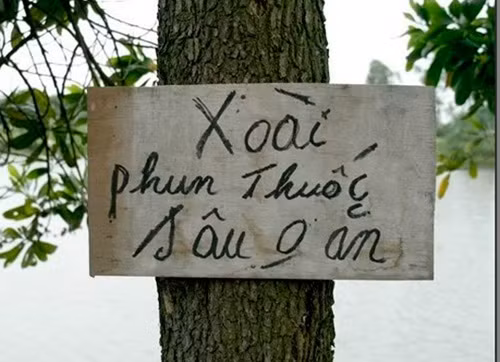 Xoài
phun Thuốc
Sâu 0 an